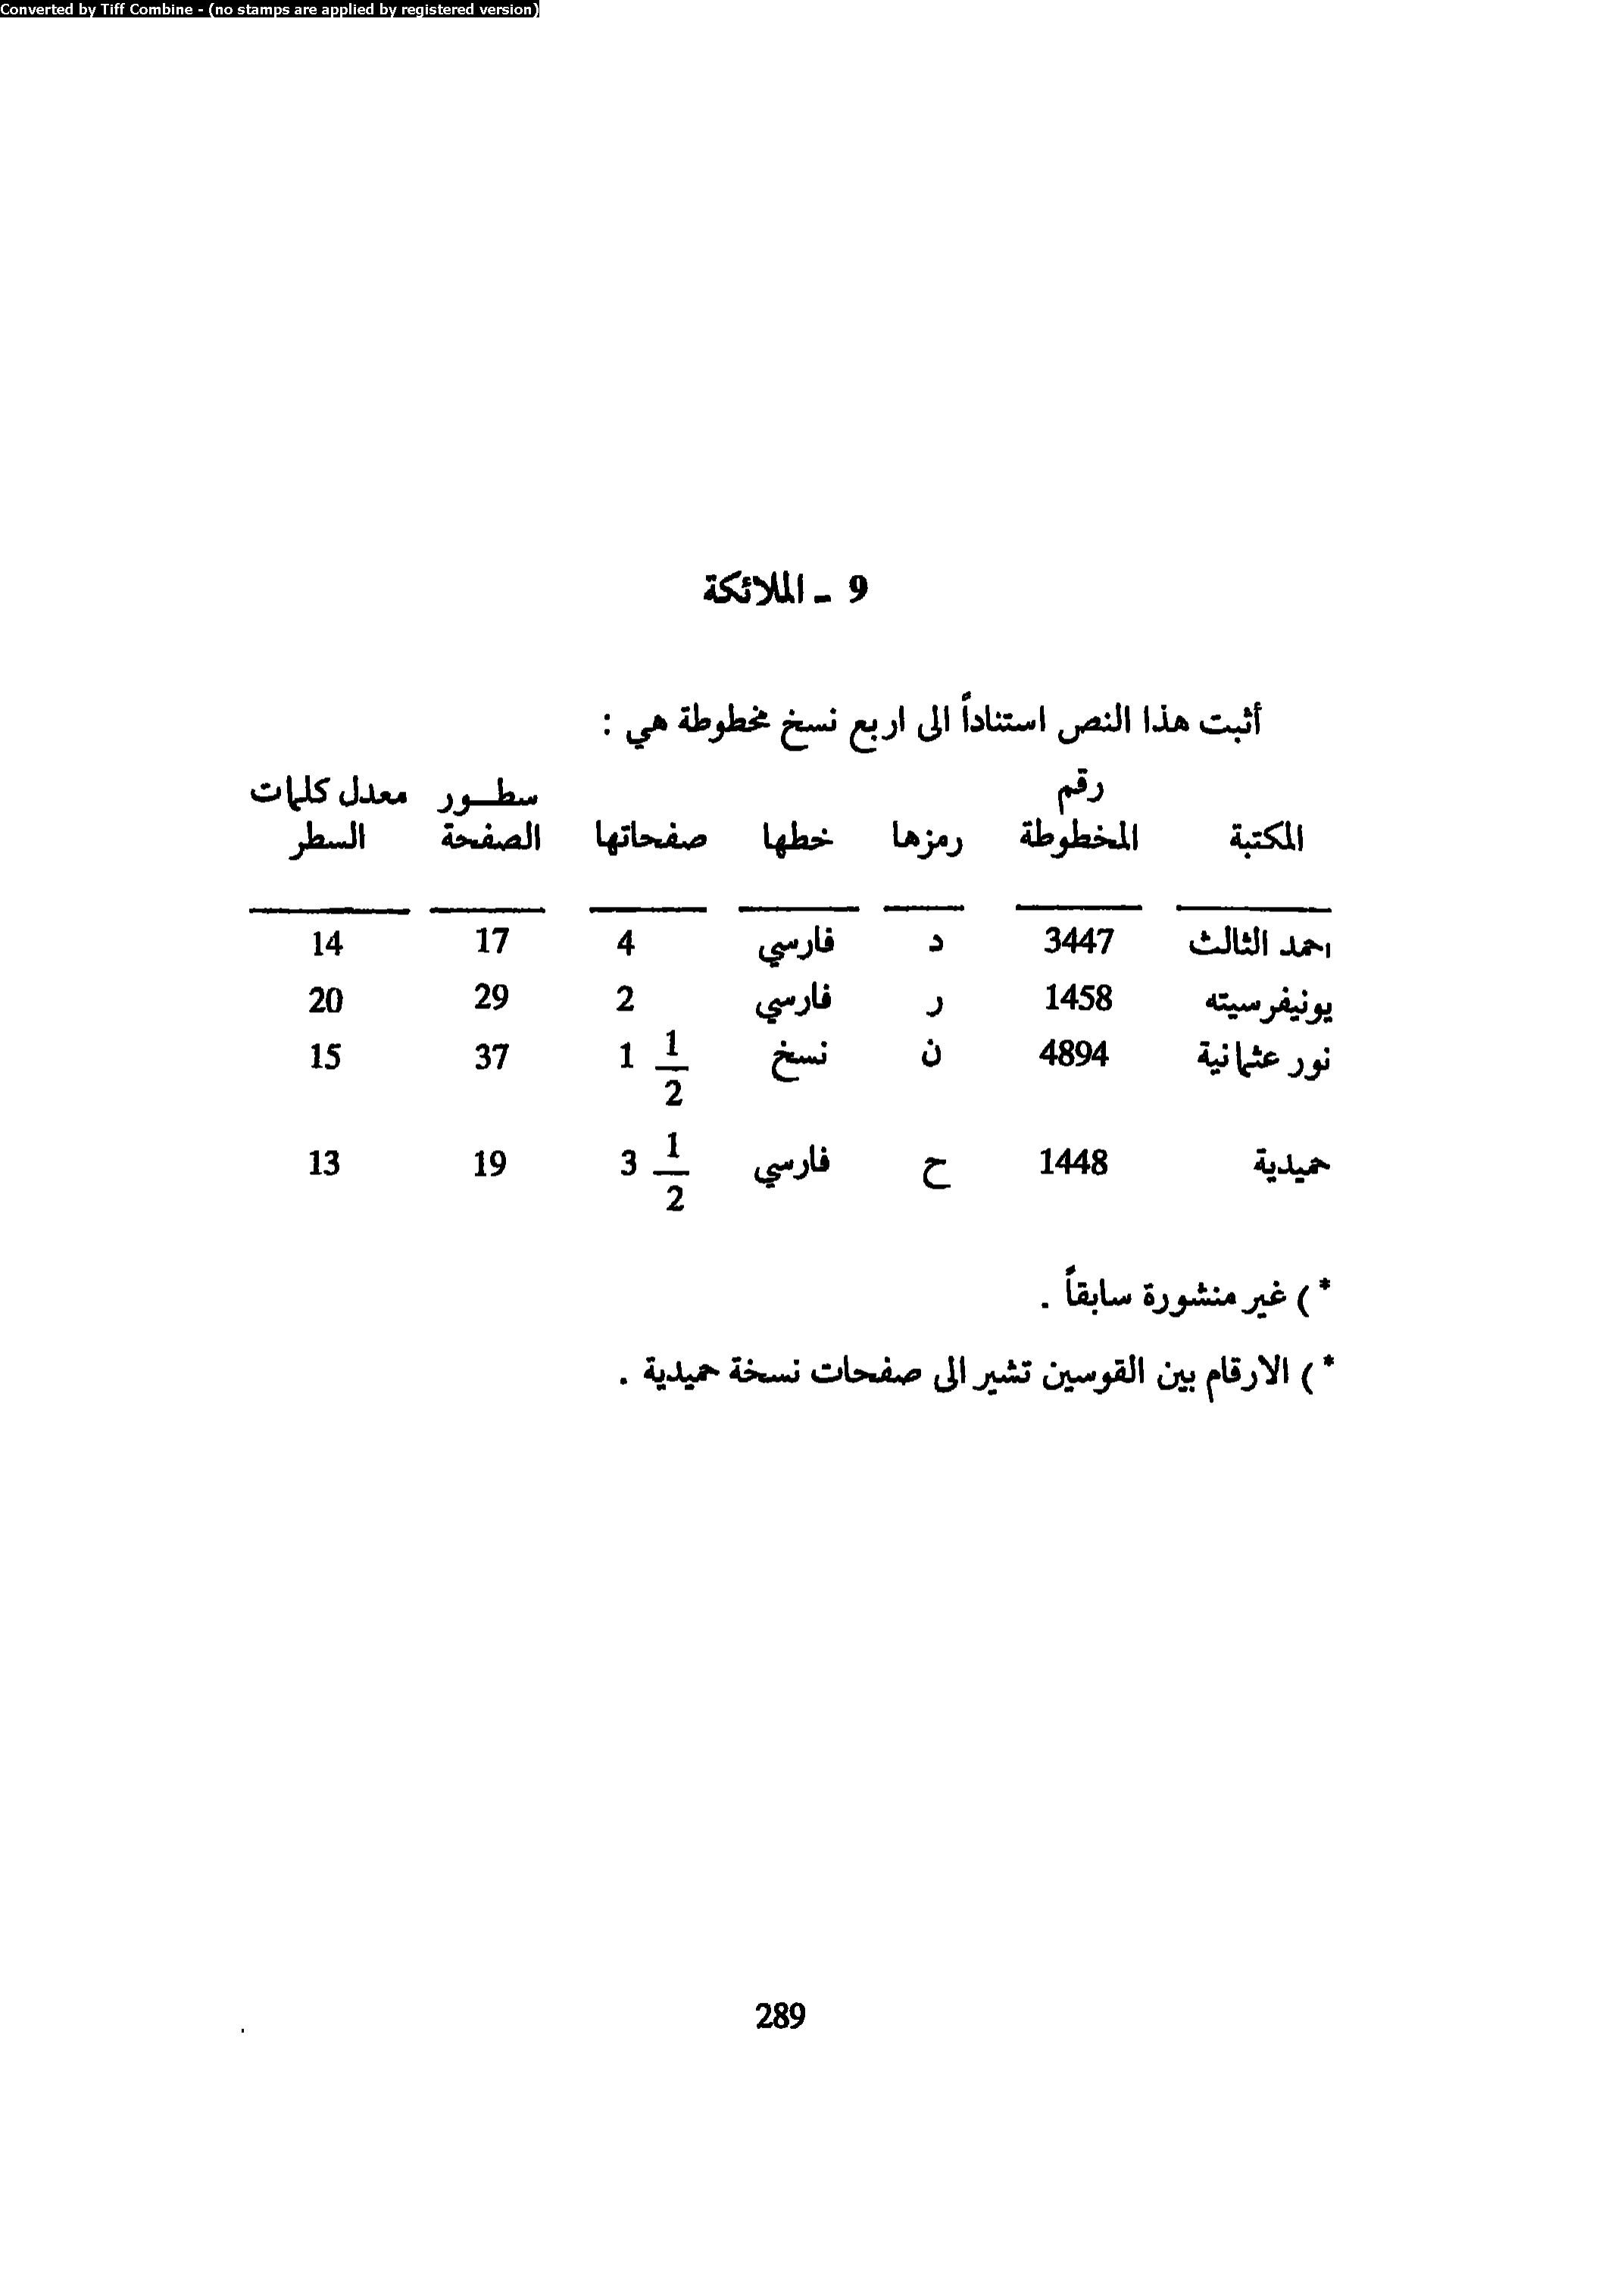 Converted by Tiff Combine - (no stamps are applied by registered version)
9 ـ الملائكة
أثبت هذا النص استناداً الى اربع نسخ مخطوطة هي :
المكتبة رقم المخطوطة رمزها خطها صفحاتها سطــور الصفحة معدل كلمات السطر
احمد الثالث 3447 د فارسي 4 17 14
يونيفرسيته 1458 ر فارسي 2 29 20
نور عثمانية 4894 ن نسخ 1 1/2 37 15
حميدية 1448 ح فارسي 3 1/2 19 13
*) غير منشورة سابقاً .
*) الارقام بين القوسين تشير الى صفحات نسخة حميدية .
289